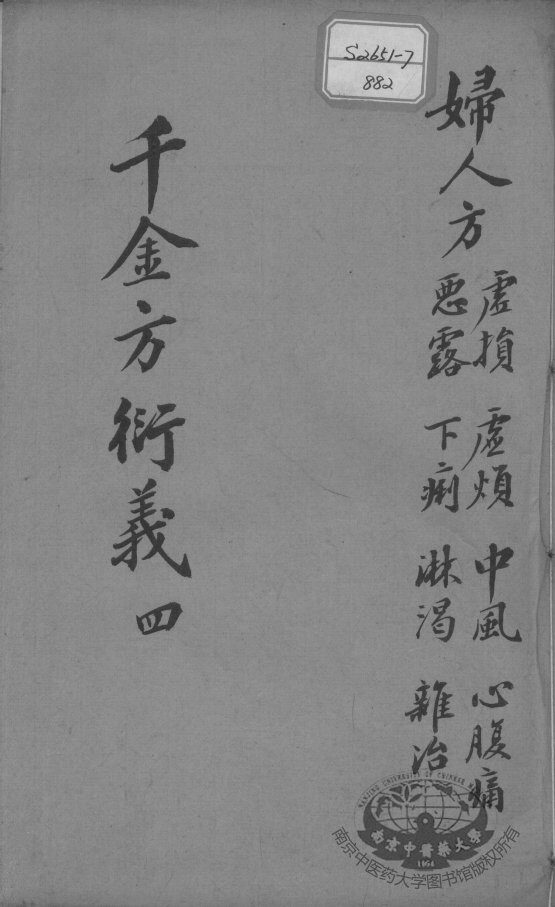 S2651-7
882
婦人方
虛損 虛煩 中風 心腹痛
惡露 下痢 淋渴 雜治
千金方衍義 四
NANJING UNIVERSITY OF CHINESE
南京中醫藥大學
1954
南京中医药大学图书馆版权所有